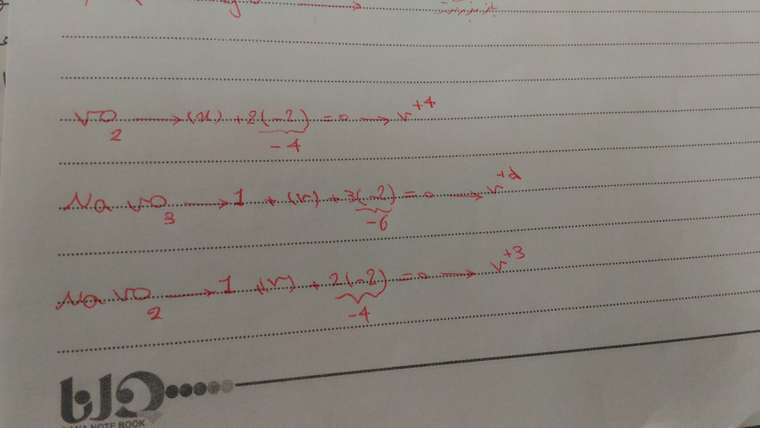 VO₂ → (x) + 2(-2) = 0 → V⁺⁴
-4
Na VO₃ → 1 + (V) + 3(-2) = 0 → V⁺⁵
-6
Na VO₂ → 1 (V) + 2(-2) = 0 → V⁺³
-4
NOTE BOOK